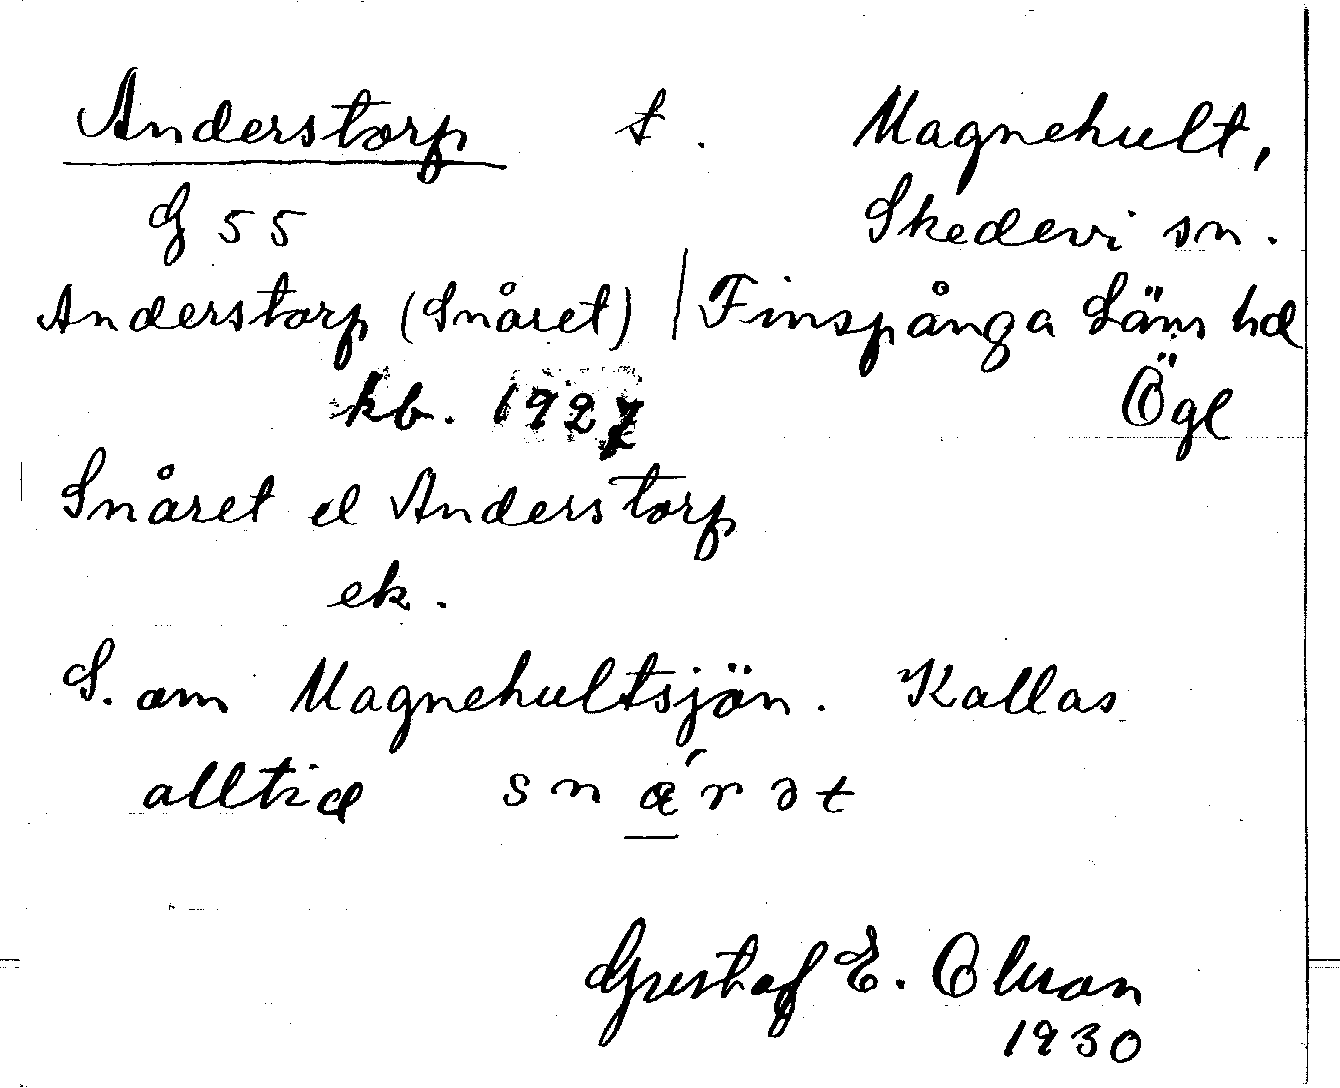 Anderstorp t. Magnehult,
G 55 Skedevi sn.
Anderstorp (Snåret) / Finspånga Läns hd
kb. 1927 Ögl
Snåret el Anderstorp
ek.
S. om Magnehultsjön. Kallas
alltid snǽrət
Gustaf E. Olsson
1930